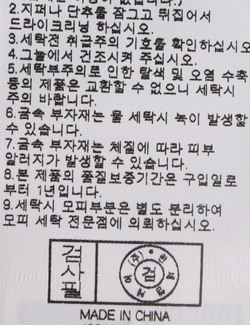 2.지퍼나 단추를 잠그고 뒤집어서
드라이크리닝 하십시오.
3.세탁전 취급주의 기호를 확인하십시오
4.그늘에서 건조시켜 주십시오.
5.세탁부주의로 인한 탈색 및 오염 수축
등의 제품은 교환할 수 없으니 세탁시
주의 바랍니다.
6.금속 부자재는 물 세탁시 녹이 발생할
수 있습니다.
7.금속 부자재는 체질에 따라 피부
알러지가 발생할 수 있습니다.
8.본 제품의 품질보증기간은 구입일로
부터 1년입니다.
9.세탁시 모피부분은 별도 분리하여
모피 세탁 전문점에 의뢰하십시오.
검사필
검
MADE IN CHINA